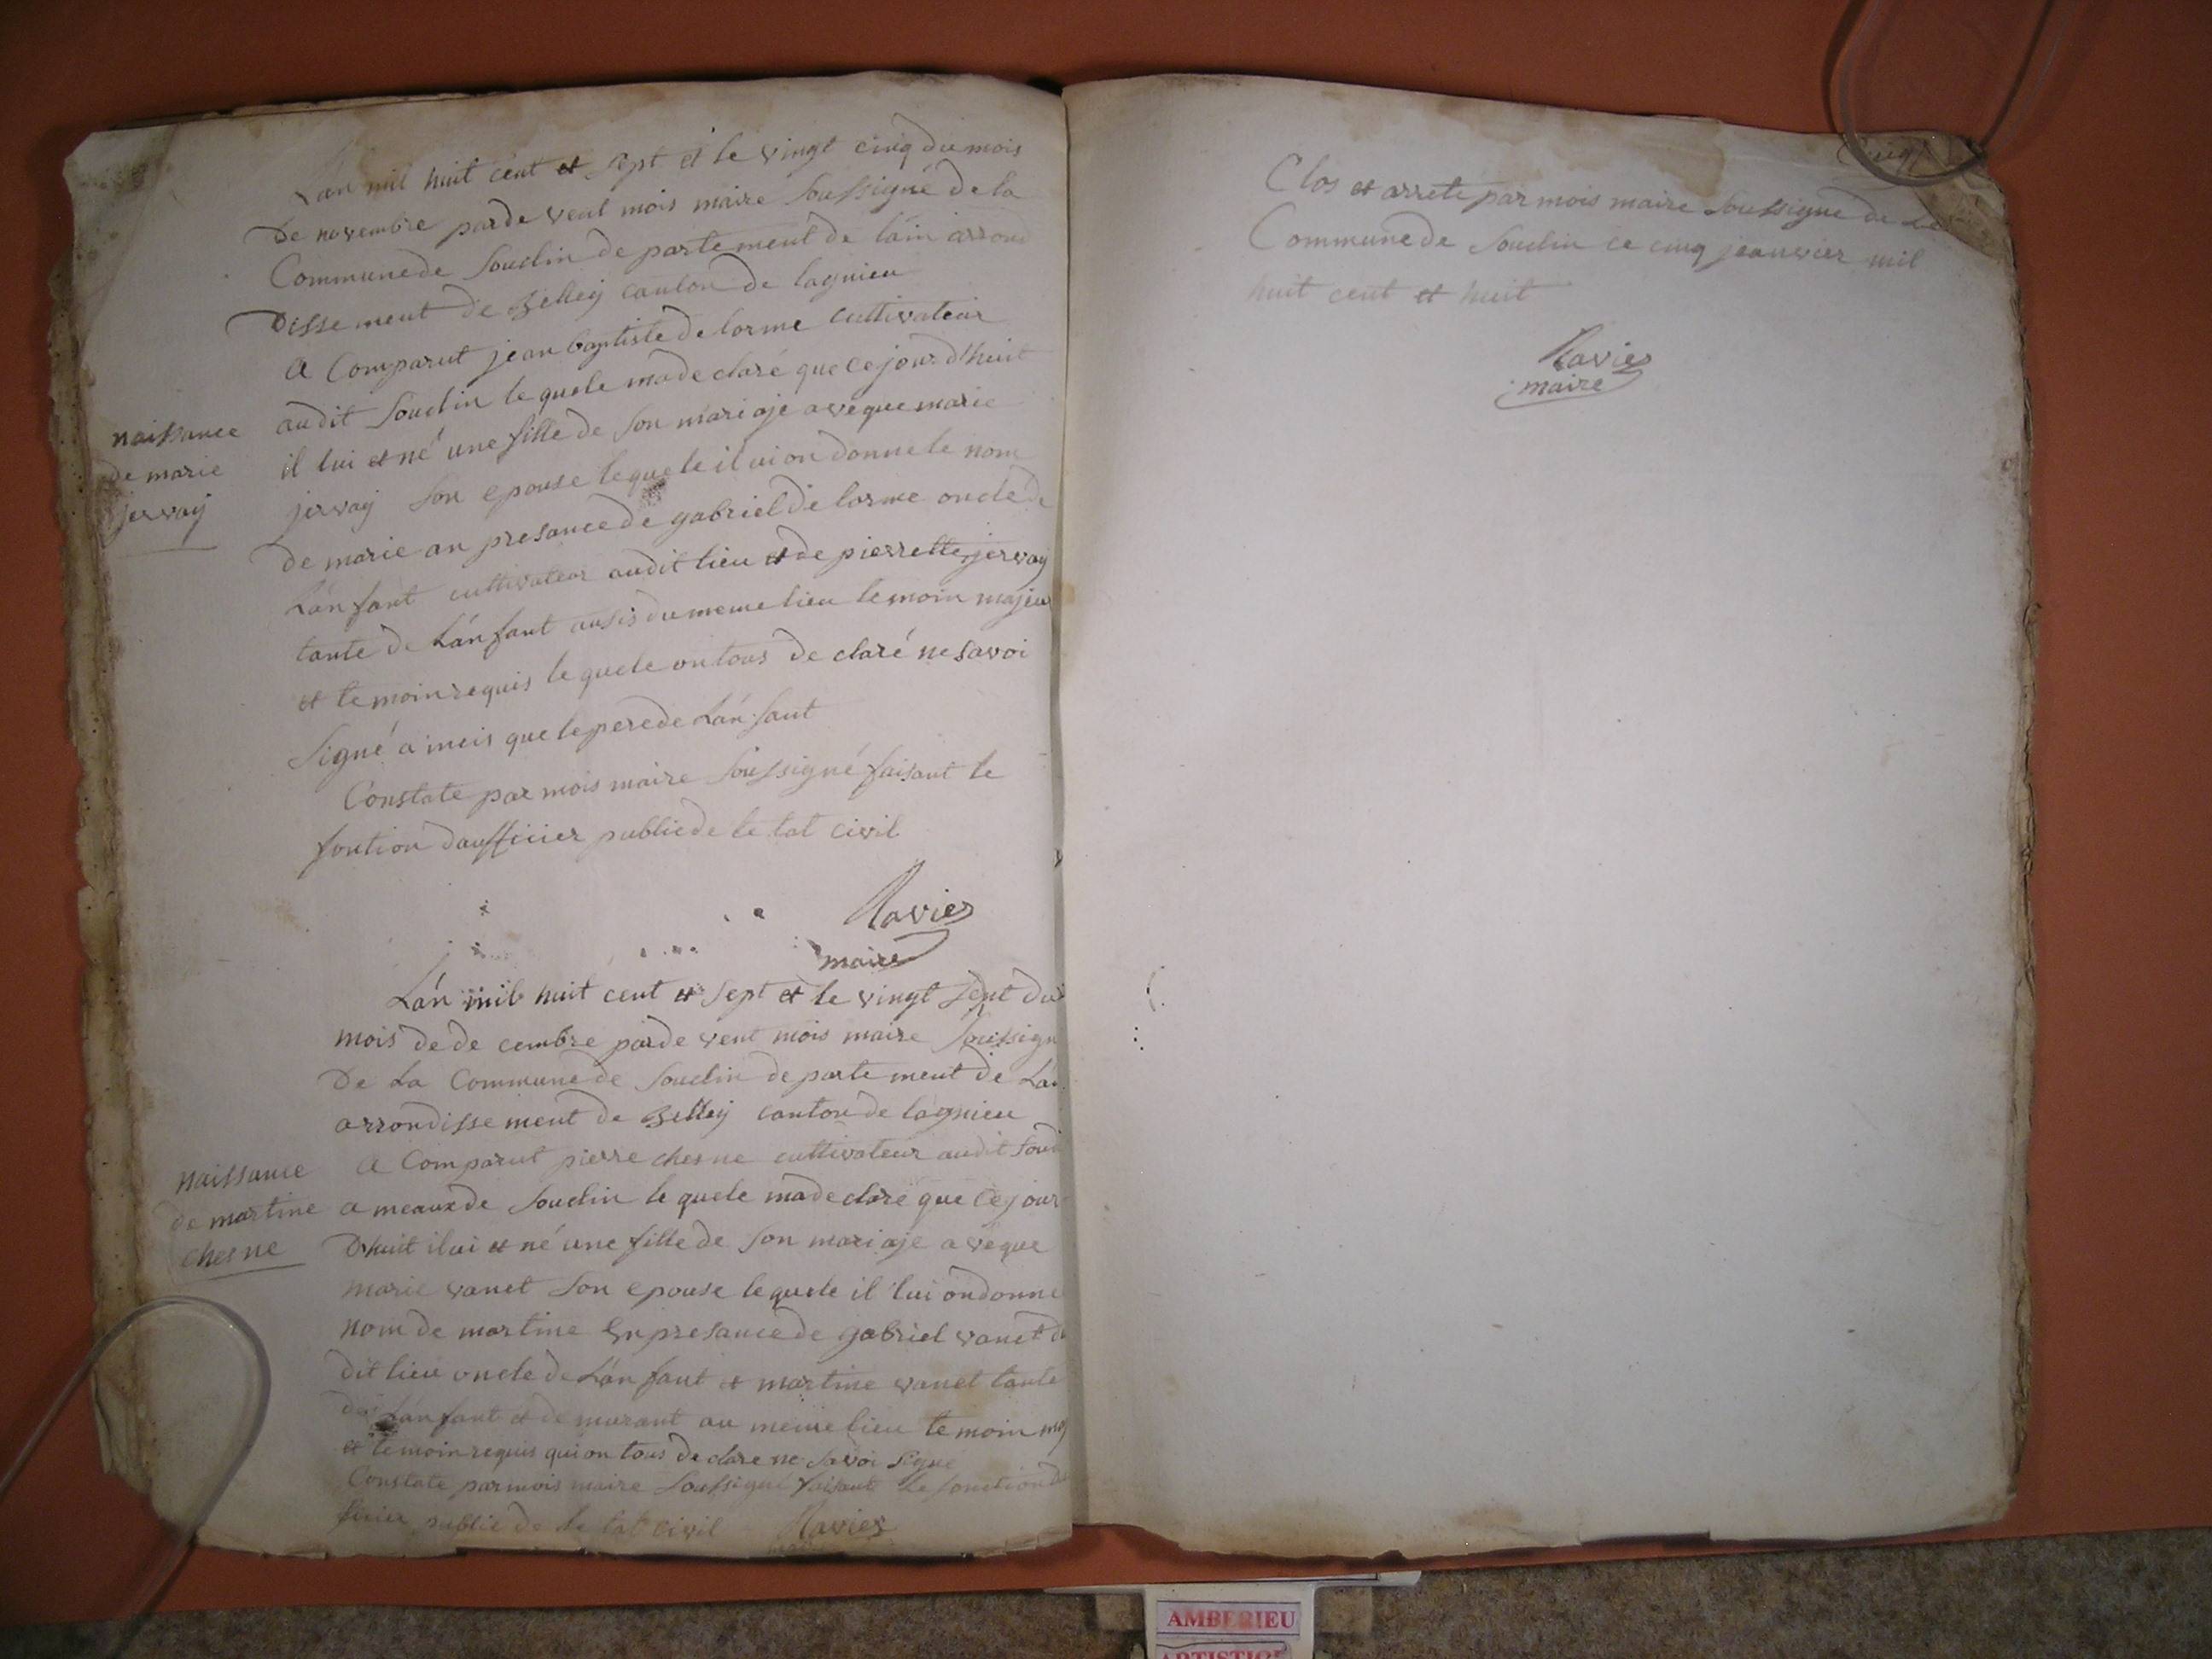 Lán mil huit cent et sept et le vingt cinq du mois
De novembre par de vent mois maire soussigné de la
Commune de Souclin de partement de láin arron
disse ment de Belley canton de lagnieu
A Comparut jean baptiste delorme cultivateur
audit Souclin le quele ma de claré que ce jour d'huit
il lui et né une fille de son mariaje a veque marie
jervay son epouse lequele il lui on donne le nom
de marie an presance de gabriel de lorme oncle de
Lán fant cultivateur audit lieu et de pierrette jervay
tante de Lán fant ausis du meme lieu temoin majeu
et temoin requis le quele on tous de claré ne savoi
signé a meis que le pere de Lán fant
Constate par mois maire soussigné faisant le
fontion daufficier public de le tat civil
Ravier
maire
naissance
de marie
jervay
Lán mil huit cent et sept et le vingt sept du
mois de de cembre par de vent mois maire soussign
De La Commune de Souclin de parte ment de Láin
arrondisse ment de Belley canton de lagnieu
A Comparut pierre chesne cultivateur audit Souc
a meaux de Souclin le quele ma de claré que ce jour
D'huit il ui et né une fille de son mariaje a veque
marie vanet son epouse lequele il lui on donne
nom de martine En presance de gabriel vanet du
dit lieu oncle de Lán fant et martine vanet tante
de Lán fant et de murant au meme lieu temoin maj
et temoin requis qui on tous de clare ne savoi signe
Constate par mois maire soussigné faisant le fonction d
ficier public de le tat civil Ravier
naissance
de martine
chesne
Cinq
Clos et arreté par mois maire soussigné de La
Commune de Souclin ce cinq jeanvier mil
huit cent et huit
Ravier
maire
AMBERIEU
ARTISTIQUE